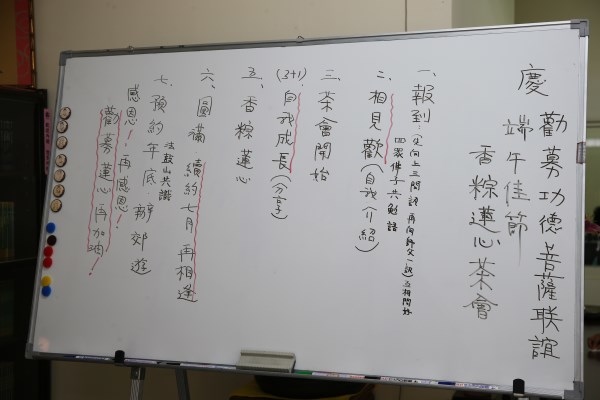 勸募功德菩薩联誼
慶 端午佳節
香粽蓮心茶會
一、報到：(先向上三問訊 再向師父一訊) 互相問好
四眾佛子共勉語
二、相見歡(自我介紹)
三、茶會開始
(3+1)、自我成長(分享)
五、香粽蓮心
六、圓滿 續約七月 再相逢
七、預約年底 辦郊遊
法鼓山共識
感恩！再感恩！
勸募蓮心再加油！